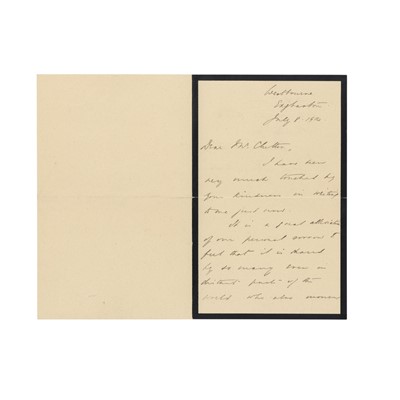 Westbourne
Edgbaston
July 8. 1914
Dear Mr.
I have been
very much touched by
your kindness in writing
to me just now.
It is a great alleviation
of our personal sorrow to
feel that it is shared
by so many even in
distant parts of the
world who also